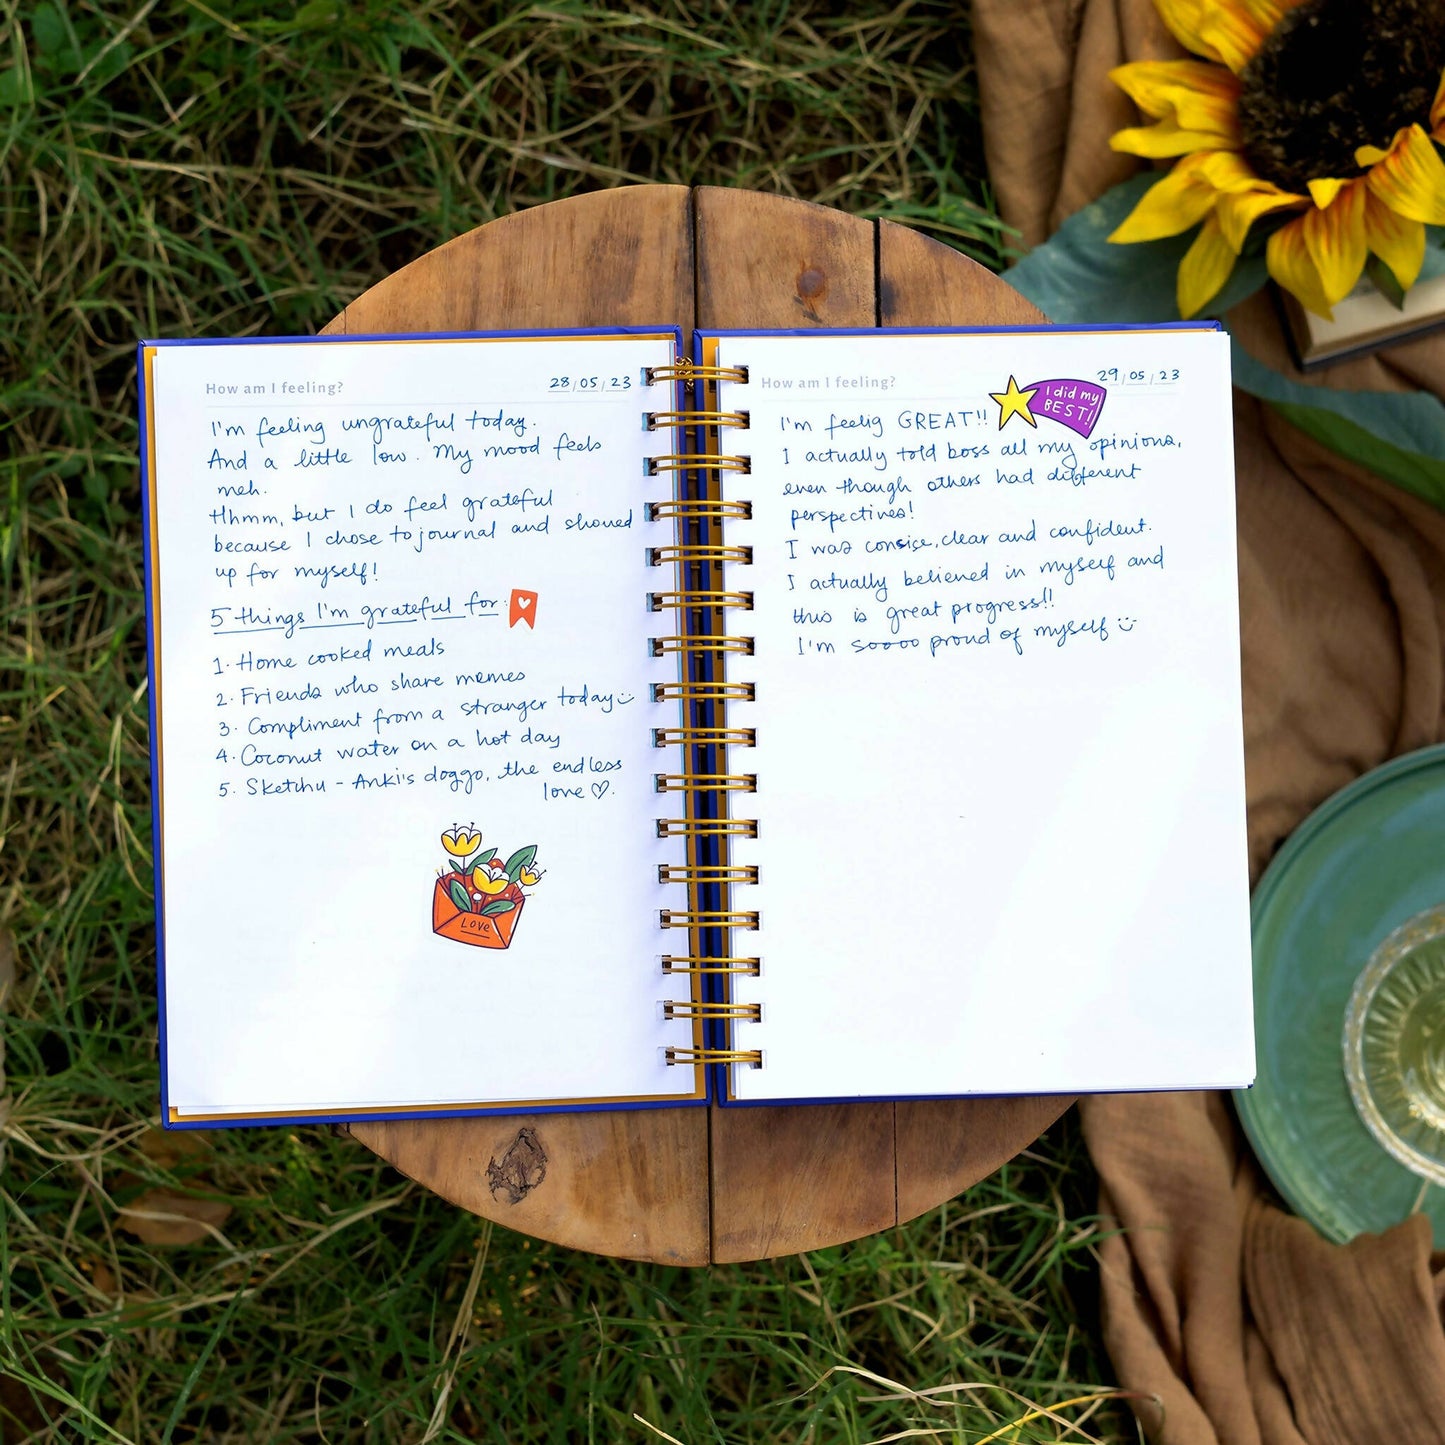 How am I feeling?
28/05/23
I'm feeling ungrateful today.
And a little low. My mood feels
meh.
Hhmm, but I do feel grateful
because I chose to journal and showed
up for myself!
5 things I'm grateful for:
1. Home cooked meals
2. Friends who share memes
3. Compliment from a stranger today
4. Coconut water on a hot day
5. Sketchu - Anki's doggo, the endless
love ♡.
LOVE
How am I feeling?
29/05/23
I did my
BEST!!
I'm feelig GREAT!!
I actually told boss all my opinions,
even though others had different
perspectives!
I was consise, clear and confident.
I actually believed in myself and
this is great progress!!
I'm soooo proud of myself